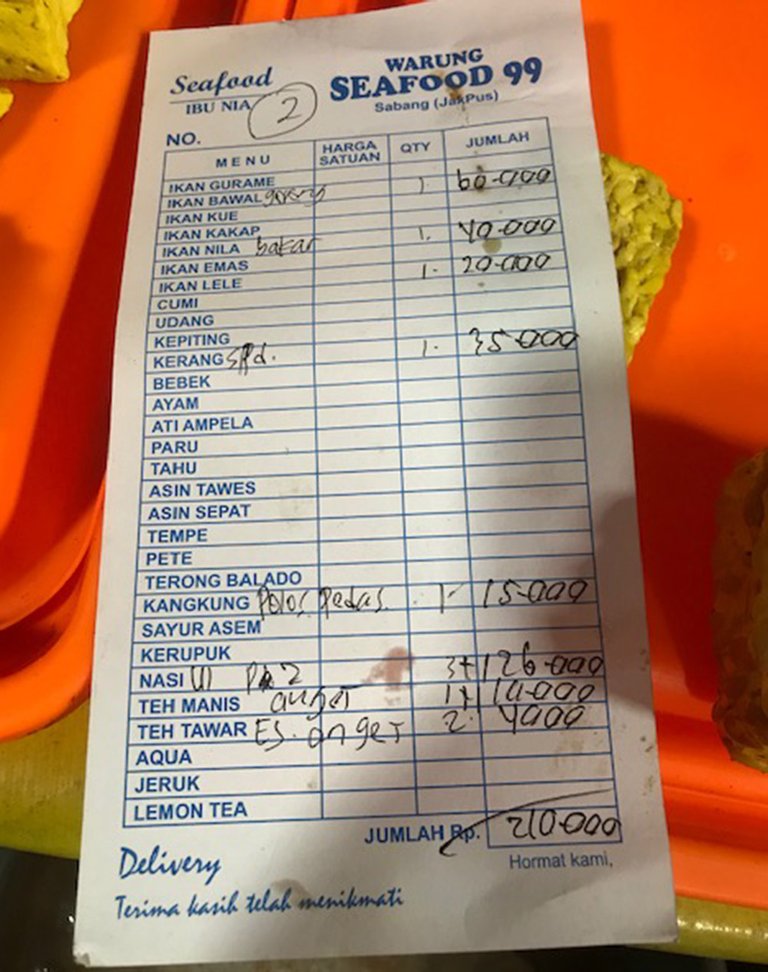 Seafood
IBU NIA
2
WARUNG
SEAFOOD 99
Sabang (JakPus)
NO.
MENU HARGA SATUAN QTY JUMLAH
IKAN GURAME
IKAN BAWAL goreng 1. 60.000
IKAN KUE
IKAN KAKAP
IKAN NILA bakar 1. 40.000
IKAN EMAS
IKAN LELE 1. 20.000
CUMI
UDANG
KEPITING
KERANG 1. 35.000
BEBEK
AYAM
ATI AMPELA
PARU
TAHU
ASIN TAWES
ASIN SEPAT
TEMPE
PETE
TERONG BALADO
KANGKUNG Polos Pedas 1 15.000
SAYUR ASEM
KERUPUK
NASI 3+1 26.000
TEH MANIS anget 1+1 10.000
TEH TAWAR ES. anget 2. 4000
AQUA
JERUK
LEMON TEA
JUMLAH Rp. 210.000
Delivery
Hormat kami,
Terima kasih telah menikmati